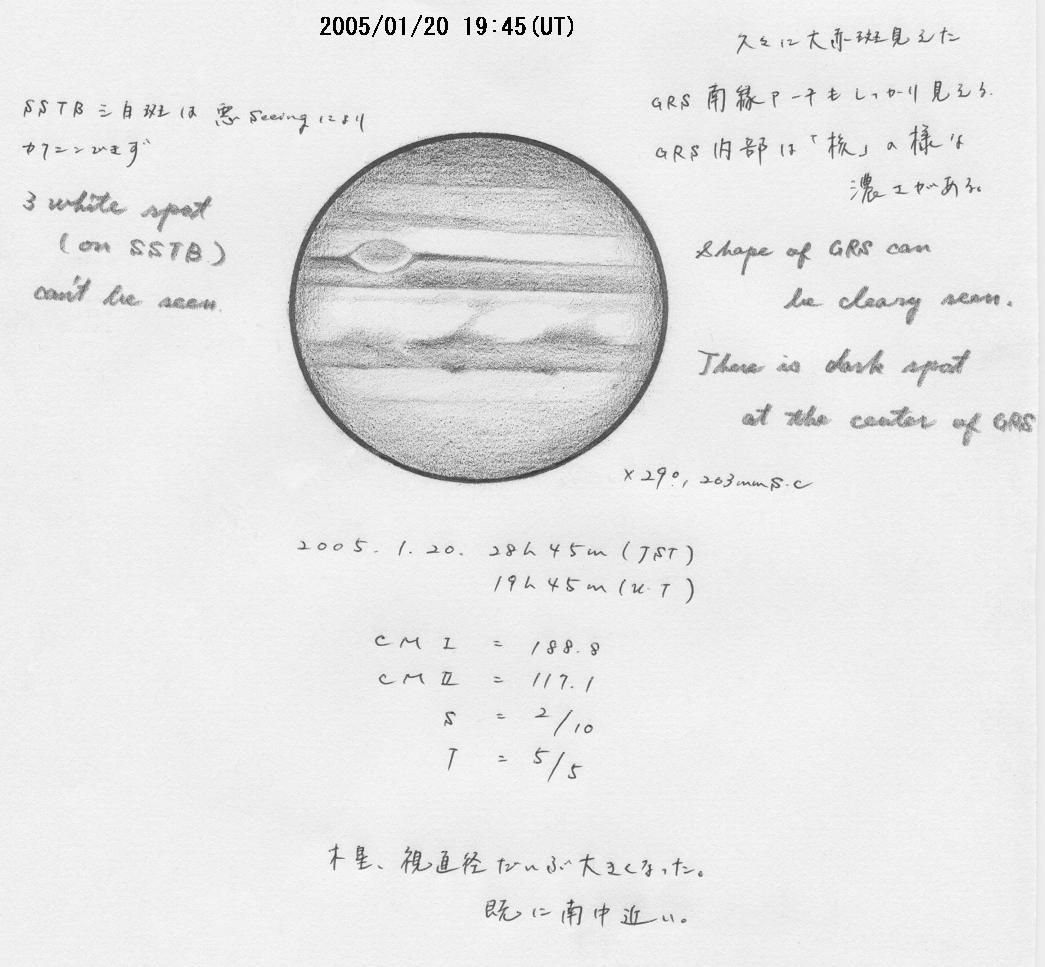 2005/01/20 19:45(UT)
久々に大赤斑見えた
GRS 南縁アーチもしっかり見える.
GRS 内部は「核」の様な
濃さがある。
SSTB 三白斑は 悪 Seeing により
カクニンできず
3 white spot
(on SSTB)
can't be seen.
Shape of GRS can
be cleary seen.
There is dark spot
at the center of GRS
×290, 203mm S.C
2005. 1. 20. 28h 45m (JST)
19h 45m (U.T)
CM I = 188.8
CM II = 117.1
S = 2/10
T = 5/5
木星、視直径だいぶ大きくなった。
既に南中近い。